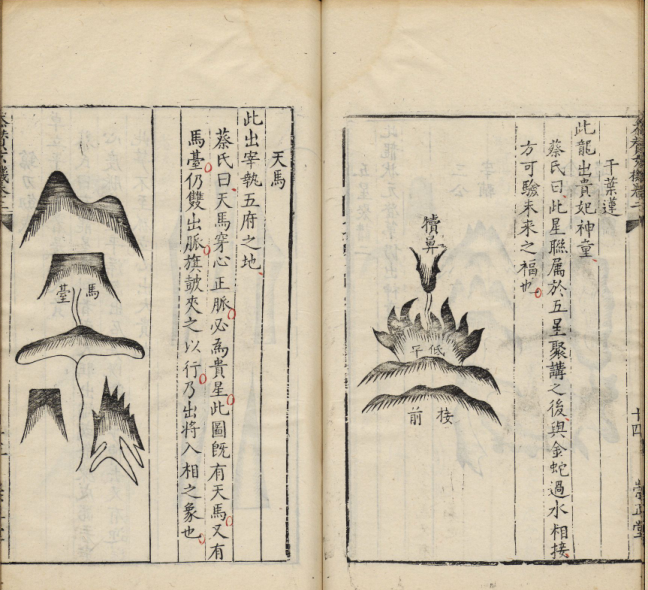 千葉蓮
此龍出貴妃神童
蔡氏曰此星聯属於五星聚講之後與金蛇過水相接
方可驗未來之福也
犢鼻
仔低
前接
十四
崇正堂
天馬
此出宰執五府之地
蔡氏曰天馬穿心正脈必為貴星此圖既有天馬又有
馬臺仍雙出脈旗皷夾之以行乃出將入相之象也
馬臺